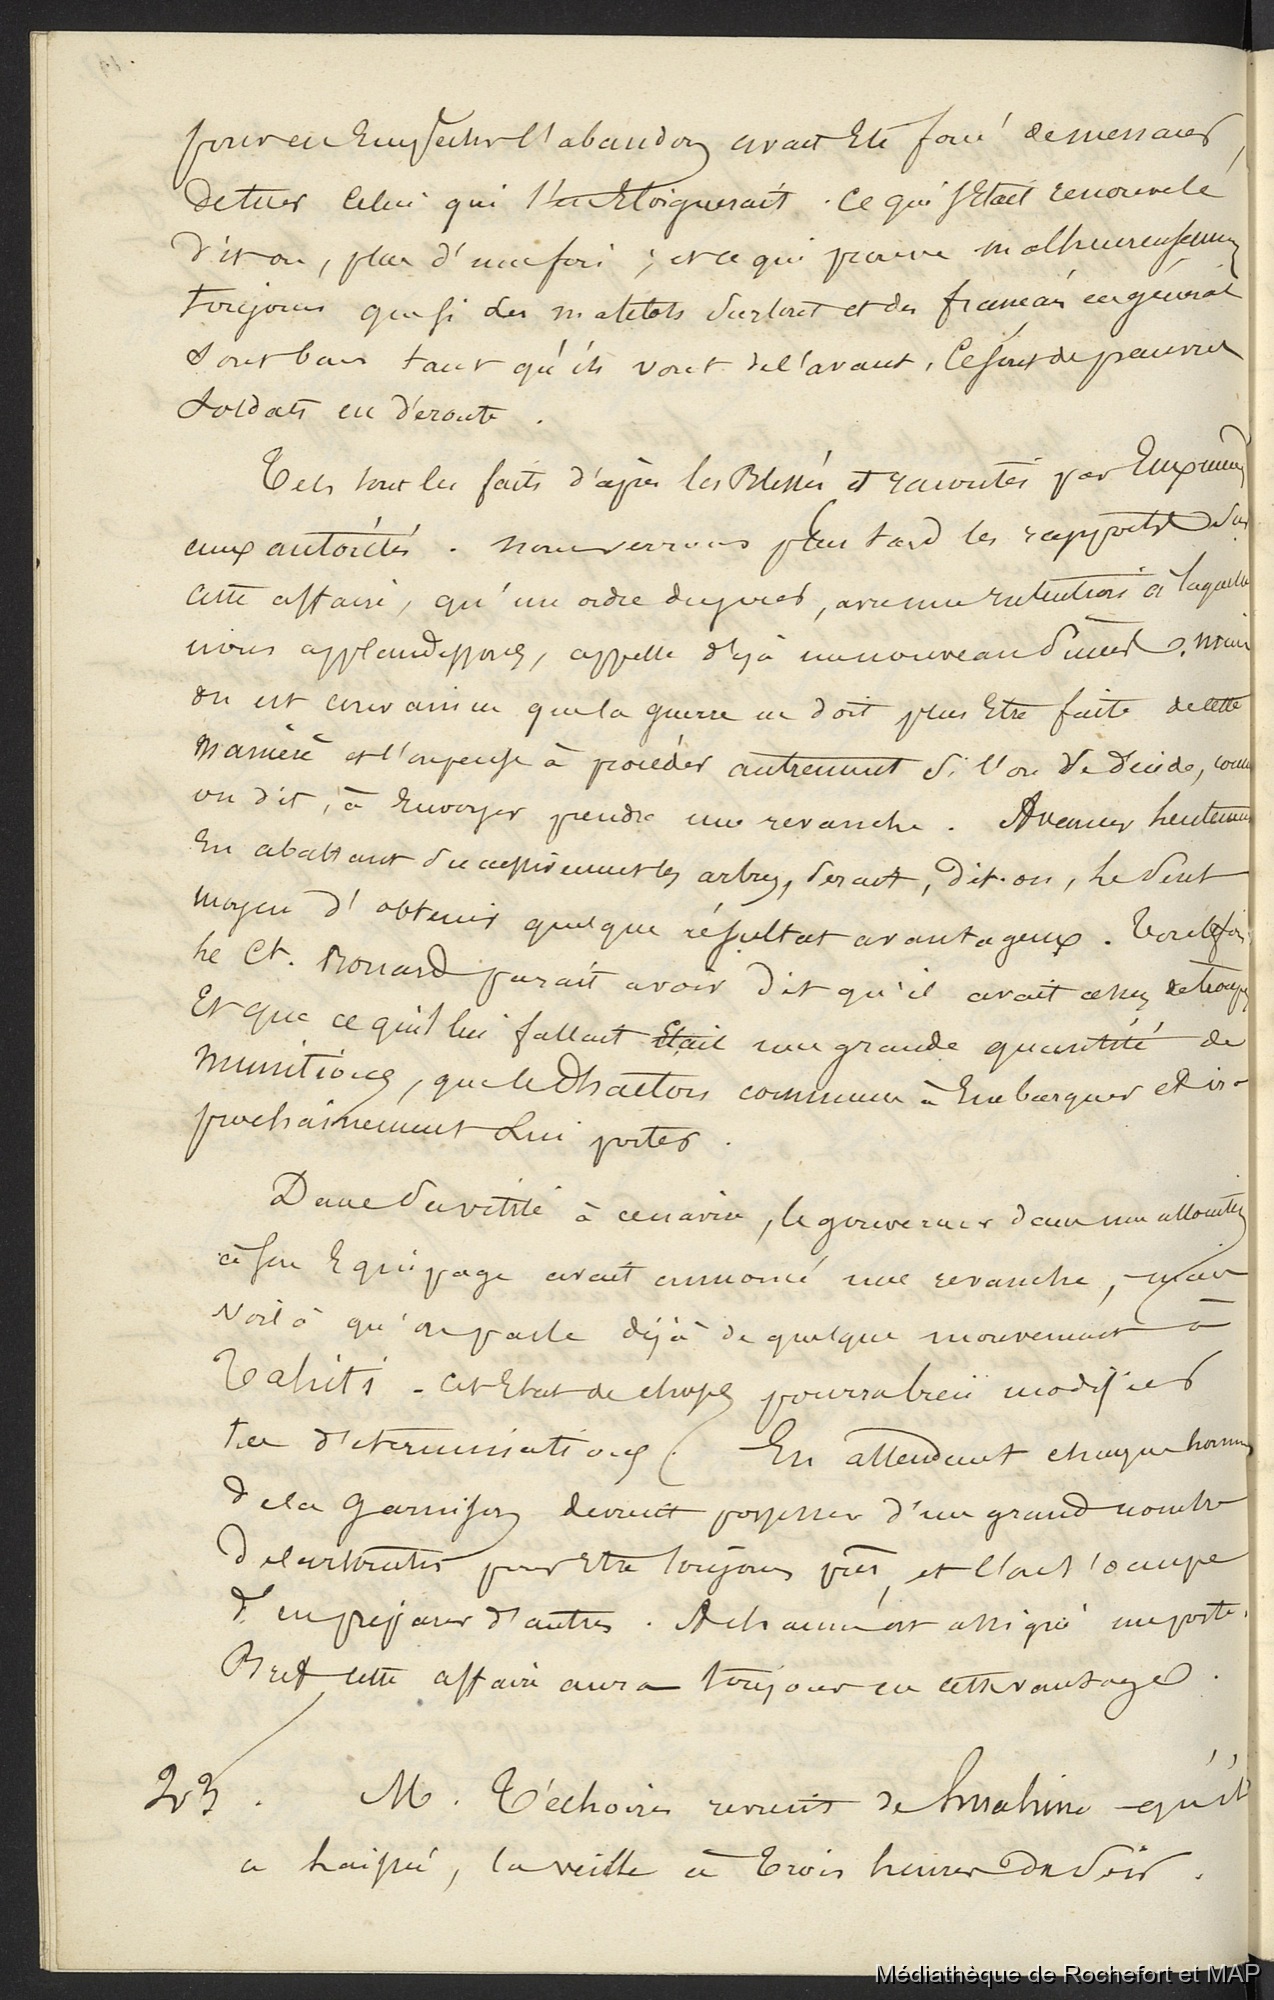 pour en Empêcher l'abandon avait Eté forcé de menacer
de tuer celui qui s'en Eloignerait. Ce qui s'était renouvelé
dit on, plus d'une fois ; et ce qui prouve malheureusement
toujours que si les matelots surtout et des français en général
sont bons tant qu'ils vont de l'avant, ce sont de pauvres
soldats en déroute.
Tels sont les faits d'après les Blessés et racontés par
aux autorités. nous verrons plus tard les rapports sur
cette affaire, qu'un ordre du jour, avec une intention à laquelle
nous applaudissons, appelle déjà un nouveau succès. Mais
on est convaincu que la guerre ne doit plus Etre faite de cette
manière et l'on pense à procéder autrement si l'on se décide, comme
on dit, à Envoyer prendre une revanche. Avancer lentement
En abattant successivement les arbres, serait, dit-on, le seul
moyen d'obtenir quelque résultat avantageux. Toutefois
le Ct. Bonard parait avoir dit qu'il avait assez de troupes
Et que ce qu'il lui fallait Etait une grande quantité de
munitions, que le Phaeton commence à Embarquer et ira
prochainement lui porter.
Dans sa visite à ce navire, le gouverneur dans une allocution
à son Equipage avait annoncé une revanche, mais
voilà qu'on parle déjà de quelque mouvement à
Tahiti. Cet Etat de choses pourra bien modifier
les déterminations. En attendant chaque homme
de la Garnison devrait posséder d'un grand nombre
de cartouches pour Etre toujours prêt, et l'on s'occupe
d'en préparer d'autres. A chacun est assigné un poste.
Bref cette affaire aura toujours eu cet avantage.
23. M. revient de huahine qu'il
a laissé, la veille à trois heures du soir.
Médiathèque de Rochefort et MAP